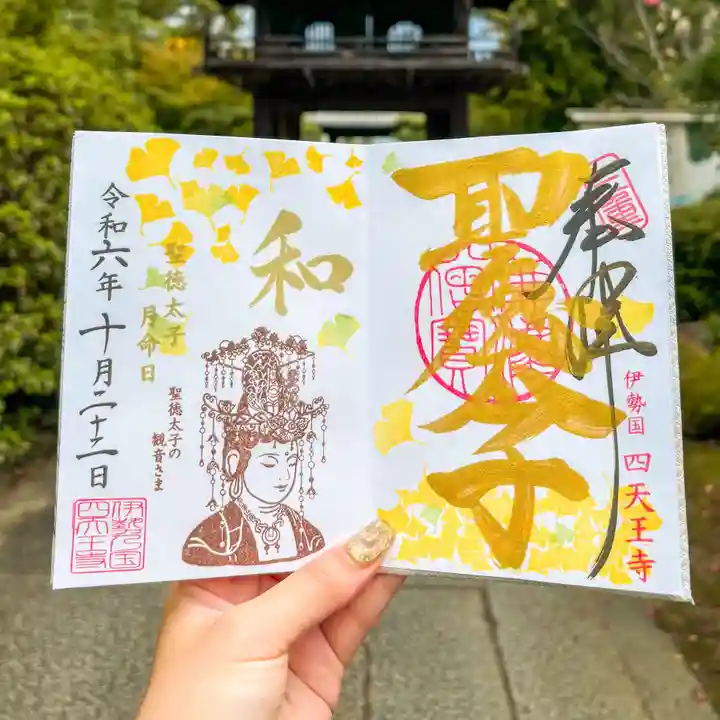 奉拝
聖徳太子
伊勢国 四天王寺
和
聖徳太子
月命日
聖徳太子の
観音さま
令和六年十月二十二日
伊勢国
四天王寺